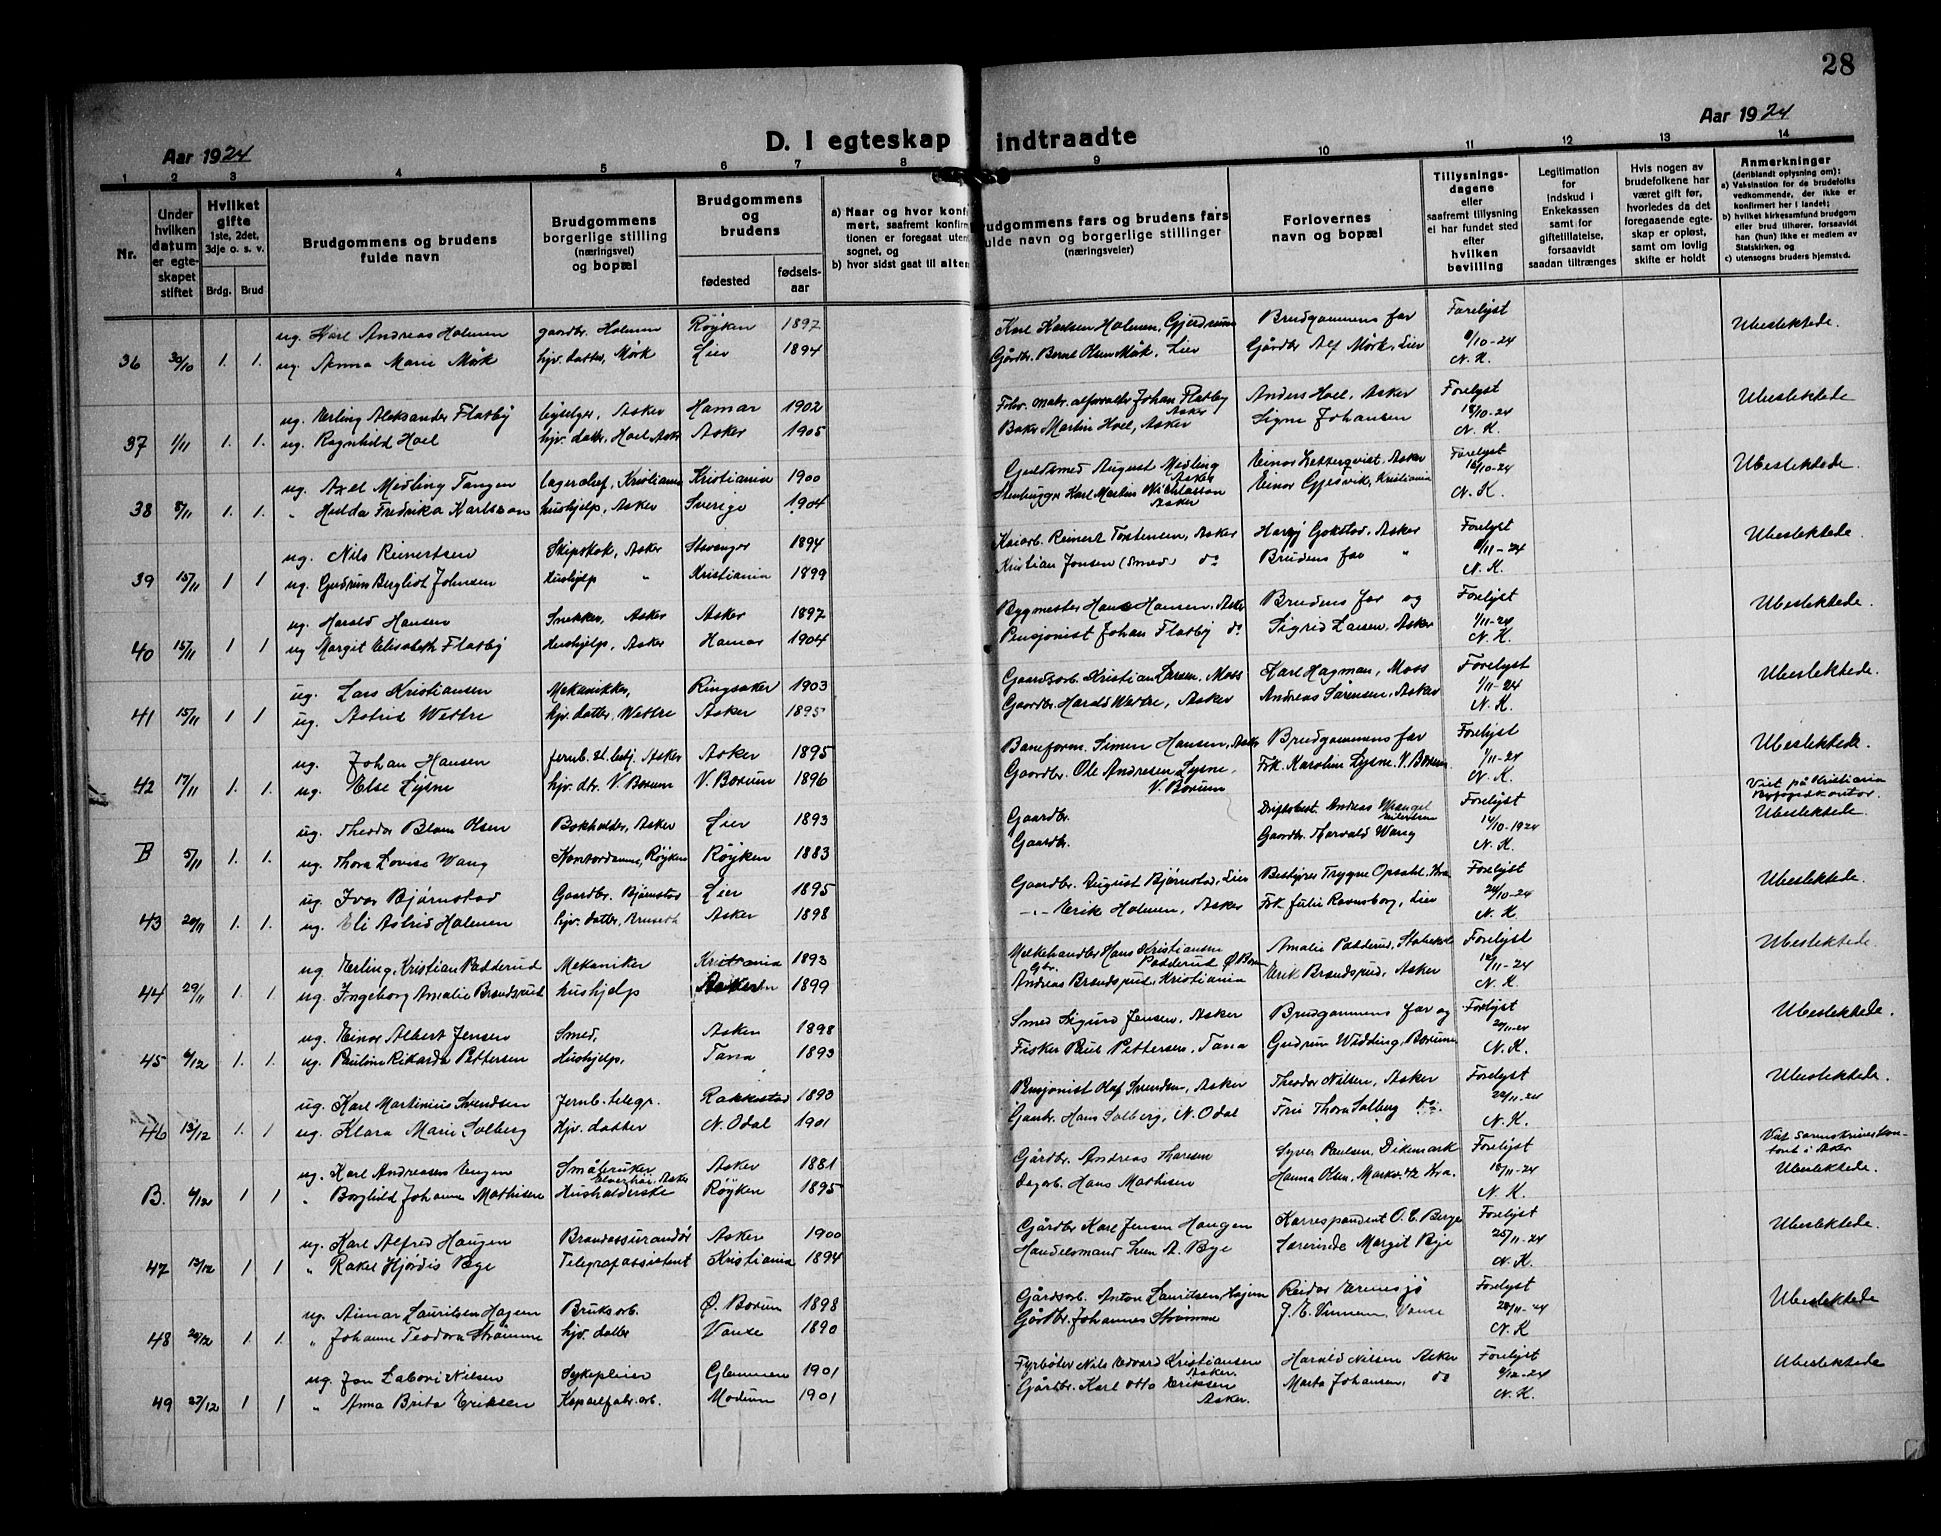 28
Aar 1924
D. I egteskap indtraadte
Aar 1924
1 2 3 4 5 6 7 8 9 10 11 12 13 14
Nr.
Under hvilken datum er egteskapet stiftet
Hvilket gifte 1ste, 2det, 3dje o. s. v.
Brdg. Brud
Brudgommens og brudens fulde navn
Brudgommens borgerlige stilling (næringsvei) og bopæl
Brudgommens og brudens
fødested fødsels-aar
a) Naar og hvor konfirmert, saafremt konfirmationen er foregaat utensognet, og
b) hvor sidst gaat til alters
Brudgommens fars og brudens fars fulde navn og borgerlige stillinger (næringsveier)
Forlovernes navn og bopæl
Tillysnings-dagene eller saafremt tillysning ei har fundet sted efter hvilken bevilling
Legitimation for Indskud i Enkekassen samt for giftetillatelse, forsaavidt saadan tiltrænges
Hvis nogen av brudefolkene har været gift før, hvorledes da det foregaaende egteskap er opløst, samt om lovlig skifte er holdt
Anmerkninger (deriblandt oplysning om):
a) Vaksination for de brudefolks vedkommende, der ikke er konfirmert her i landet;
b) hvilket kirkesamfund brudgom eller brud tilhører, forsaavidt han (hun) ikke er medlem av Statskirken, og
c) utensogns bruders hjemsted.
ug. Karl Andreas Holmen gaardbr. Holmen Røyken 1897 Karl Karlsen Holmen, Gjerdrum Brudgommens far Forelyst Ubeslektede.
36 30/10 1. 1. ug. Anna Marie Mørk hjv. datter, Mørk Lier 1894 Gårdbr. Bernt Olsen Mørk, Lier Gårdbr Alf Mørk, Lier 8/10-24 N. K.
ug. Erling Aleksander Flatby Asker Hamar 1902 Johan Flatby Asker Anders Hoel, Asker Forelyst Ubeslektede
37 1/11 1. 1. ug. Ragnhild Hoel hjv. datter, Hoel Asker Asker 1905 Baker Martin Hoel, Asker Signe Johansen 18/10-24 N. K.
ug. Axel Midling Tangen lagerchef, Kristiania Kristiania 1900 Guldsmed August Midling Asker Einar Zetterqvist, Asker Forelyst Ubeslektede.
38 8/11 1. 1. " Hulda Fredrika Karlsson hushjelp, Asker Sverige 1904 Stenhugger Karl Martin Asker Einar Gjesvik, Kristiania 16/10-24 N. K.
ug. Nils Reinertsen Skipskok, Asker Stavanger 1894 Kaiarb. Reinert Torstensen, Asker Harry Gokstad, Asker Forelyst Ubeslektede.
39 15/11 1 1 ug. Gudrun Bergliot Johnsen Hushjelp " Kristiania 1899 Kristian Jonsen (Smed) do Brudens far " 8/11-24 N. K.
ug. Harald Hansen Snekker, Asker Asker 1897 Bygmester Hans Hansen, Asker Brudens far og Forelyst Ubeslektede.
40 15/11 1 1 ug Margit Elisabeth Flatby Hushjelp, Asker Hamar 1904 Pensjonist Johan Flatby do Sigrid Larsen, Asker 1/11-24 N. K.
ug. Lars Kristiansen Mekanikker, Ringsaker 1903 Gaardsarb. Kristian Larsen, Moss Karl Hagman, Moss Forelyst Ubeslektede.
41 15/11 1 1 ug. Astrid Wettre hjv. datter, Wettre Asker 1895 Gaardbr. Harald Wettre, Asker Andreas Sørensen, Asker 1/11-24 N. K.
ug. Johan Hansen Jernb. st. betj. Asker Asker 1895 Baneform. Simen Hansen, Asker Brudgommens far Forelyst Ubeslektede.
42 17/11 1. 1. ug. Else Lysne hjv. dtr. V. Bærum V. Bærum 1896 Gaardbr. Ole Andresen Lysne, V. Bærum Frk. Karoline Lysne, V. Bærum 1/11-24 N. K.
Viet på Kristiania Byfogedkontor.
ug. Theodor Blom Olsen Bokholder, Asker Lier 1893 Gaardbr. Driftsbest. Andreas Wrangel Forelyst Ubeslektede.
B 5/11 1. 1. ug. Thora Lovise Wang Kontordame, Røyken Røyken 1883 Gaardbr. Gaardbr. Torvald Wang 14/10-1924 N. K.
ug. Ivar Bjørnstad Gaardbr. Bjørnstad Lier 1895 Gaardbr. August Bjørnstad, Lier Bestyrer Trygve Opsahl, Kra. Forelyst Ubeslektede.
43 20/11 1. 1. ug. Eli Astrid Holmen hjv. datter, Asker 1898 -"- Erik Holmen, Asker Frk. Julie Ravnsborg, Lier 24/10-24 N. K.
ug Erling, Kristian Padderud Mekaniker Kristiania 1893 Melkehandler Hans Kristiansen Padderud Ø. Bærum Amalie Padderud, Stabekk Forelyst Ubeslektede
44 29/11 1. 1. ug. Ingeborg Amalie Brandsrud hushjelp Asker 1899 Gbr. Andreas Brandsrud, Kristiania Erik Brandsrud, Asker 18/11-24 N. K.
ug. Einar Albert Jensen Smed, Asker 1898 Smed Sigurd Jensen, Asker Brudgommens far og Forelyst Ubeslektede.
45 6/12 1. 1. ug. Pauline Rikarda Pettersen Hushjelp, Tana 1893 Fisker Paul Pettersen, Tana Gudrun Widding, Bærum 20/11-24 N. K.
ug. Karl Martinius Svendsen Jernb. telegr. Rakkestad 1890 Pensjonist Olaf Svendsen, Asker Theodor Nilsen, Asker Forelyst Ubeslektede.
46 13/12 1. 1 ug. Klara Marie Solberg Hjv. datter N. Odal 1901 Gaardbr. Hans Solberg, N. Odal Fru Thora Solberg do. 20/11-24 N. K.
Viet sorenskriverkontoret i Asker
ug. Karl Andreasen Engen Småbruker Elverhøi, Asker Asker 1881 Gårdbr. Andreas Syver Paulsen, Dikemark Forelyst Ubeslektede.
B. 6/12 1 1 " Borghild Johanne Mathisen Husholderske Røyken 1895 Dagarb. Hans Mathisen Hanna Olsen, 18/11-24 N. K.
ug. Karl Alfred Haugen Brandassurandør Asker 1900 Gårdbr Karl Jensen Haugen Korrespondent O. C. Berge Forelyst Ubeslektede.
47 13/12 1 1 " Rakel Hjørdis Bye Telegrafassistent Kristiania 1894 Handelsmand Sven A. Bye Lærerinde Margit Bye 25/11-24 N. K.
ug. Aimar Lauritsen Hagen Bruksarb. Ø. Bærum 1898 Gårdsarb. Anton Lauritsen, Hagen Reidar Forelyst Ubeslektede
48 20/12 1. 1. " Johanne Teodora Strømme hjv. datter Vanse 1890 Gårdbr. Johannes Strømme J. E. Vanse 28/11-24 N. K
ug. Jon Labori Nilsen Sykepleier Glemmen 1901 Fyrbøter Nils Edvard Kristiansen Asker. Harald Nilsen Asker Forelyst Ubeslektede
49 27/12 1 1 " Anna Brita Eriksen Kapselfabr. arb. Modum 1901 Gårdbr. Karl Otto Eriksen Asker. Marta Johansen, do 9/12-24 N. K.